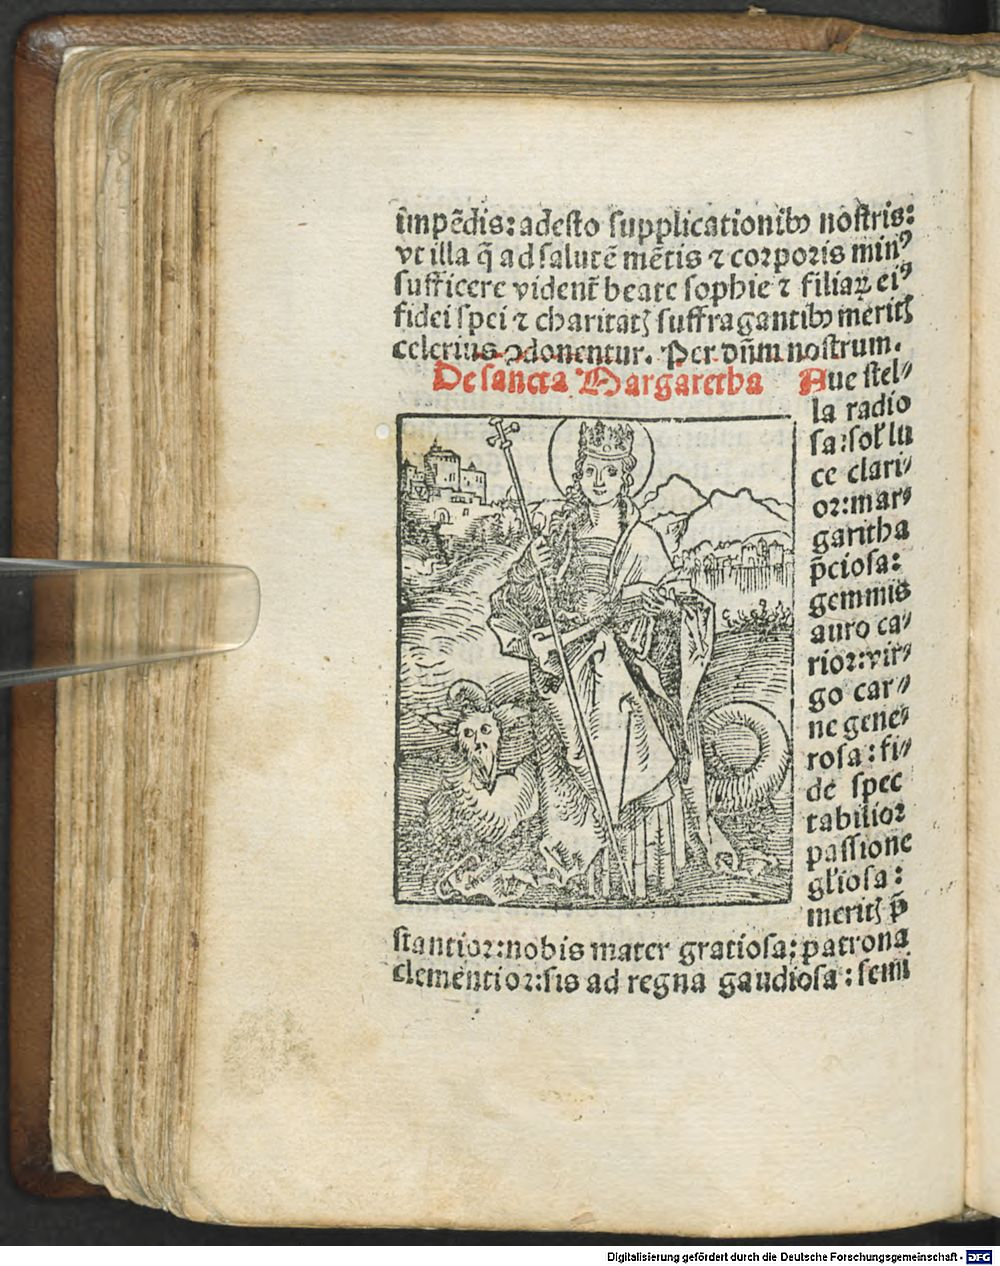 impēdis: adesto supplicationibꝰ nostris:
vt illa q̄ ad salutē mētis ⁊ corporis minꝰ
sufficere vident̄ beate sophie ⁊ filiaꝝ eiꝰ
fidei spei ⁊ charitatꝫ suffragantibꝰ meritꝫ
celerius ↄdonentur. Per dn̄m nostrum.
De sancta Margaretha Aue stel⸗
la radio
sa: sol' lu
ce clari⸗
or: mar⸗
garitha
p̄ciosa:
gemmis
auro ca⸗
rior: vir⸗
go car⸗
ne gene⸗
rosa: fi⸗
de spec
tabilior
passione
gl'iosa:
meritꝫ p̄
stantior: nobis mater gratiosa: patrona
clementior: sis ad regna gaudiosa: semi
Digitalisierung gefördert durch die Deutsche Forschungsgemeinschaft - DFG